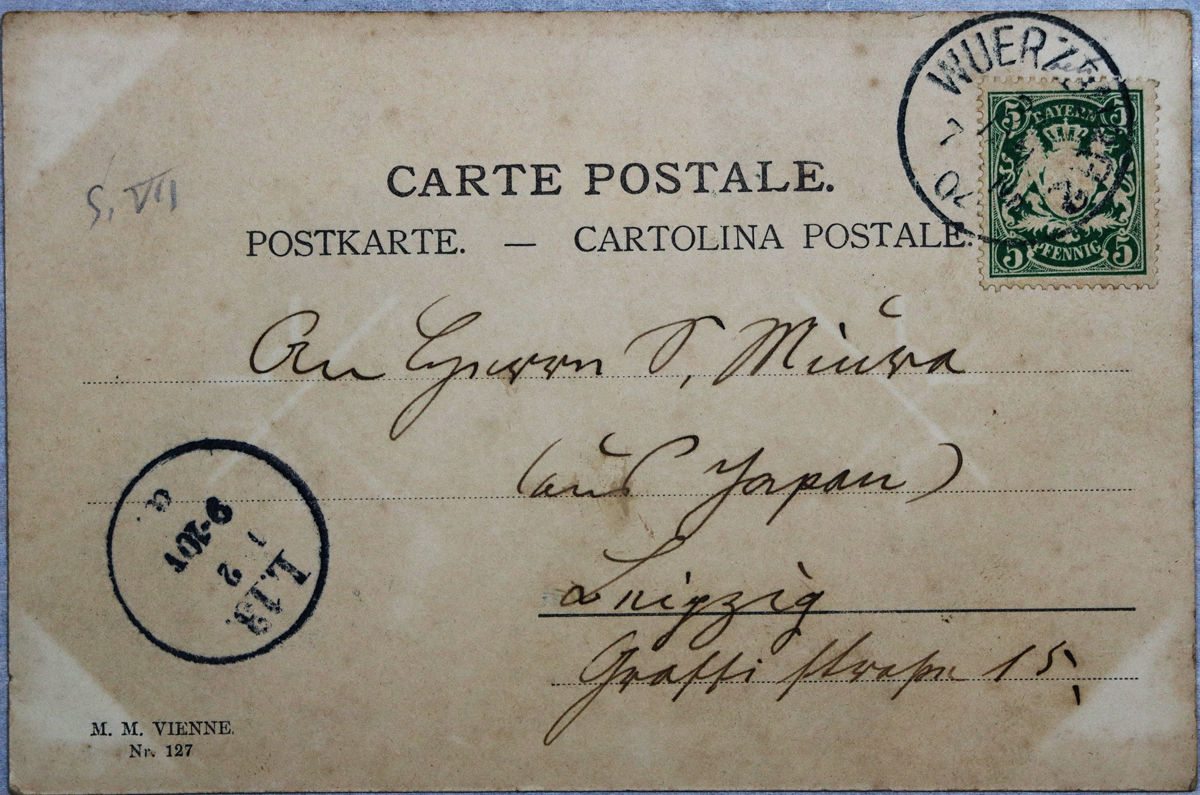 WUERZ
5 BAYERN 5
5 PFENNIG 5
S. VII
CARTE POSTALE.
POSTKARTE. — CARTOLINA POSTALE.
An Herrn S. Miura
(aus Japan)
Leipzig
Grassi straße 15,
L.13.
2
9-10V
a
M. M. VIENNE.
Nr. 127